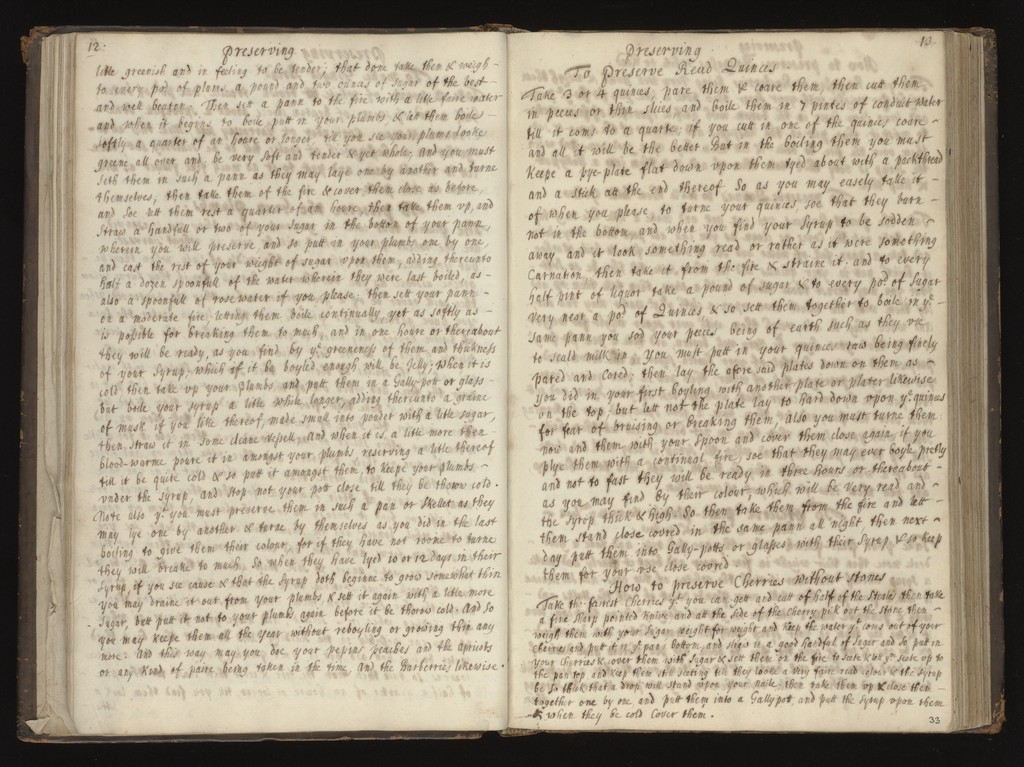 12.
Preserving
litle greenish and in feeling to be tender; that done take them & weigh
to every po: of plums a pound and two ounces of sugar of the best
and well beaten. Then sett a pann to the fire with a litle faire water
and when it begins to boile putt in your plumbs & let them boile
softly a quarter of an houre or longer till you see your plums looke
greene all over and be very soft and tender & yet whole; and you must
seth them in such a pann as they may laye one by another and turne
themselves, then take them of the fire & cover them close as before,
and soe lett them rest a quarter of an houre, then take them up, and
straw a handfull or two of your sugar in the bottom of your pann,
wherein you will preserve, and so putt in your plumbs one by one,
and cast the rest of your weight of sugar upon them, adding thereunto
half a dozen spoonfull of the water wherein they were last boiled, as
also a spoonfull of rosewater if you please; then sett your pann
on a moderate fire, letting them boile continually yet as softly as
is possible for breaking them to much, and in one houre or thereabout
they will be ready, as you find by ye greeneness of them and thickness
of your Syrup, which if it be boyled enough will be Jelly; when it is
cold then take up your plumbs and putt them in a Gally-pott or glass
but boile your syrup a litle while longer, adding thereunto a graine
of musk if you like thereof, made small into pouder with a litle sugar,
then straw it in some cleane vessell, and when it is a litle more then
blood-warme poure it in amongst your plumbs, reserving a litle thereof
till it be quite cold & so putt it amongst them to keepe your plumbs
under the syrup, and stop not your pott close till they be throw cold.
Note also yt you must preserve them in such a pan or skellet as they
may lye one by another & turne by themselves as you did in the last
boiling to give them their colour, for if they have not roome to turne
they will breake to much. So when they have lyed 10 or 12 days in their
syrup, if you see cause & that the syrup doth beginne to grow somewhat thin
you may draine it out from your plumbs & sett it again with a litle more
sugar, butt putt it not to your plumbs again before it be throw cold. And so
you may keepe them all the year without reboyling or growing thin any
more. And this way may you doe your pepins peaches and the Apricots
or any kind of paire being taken in the time and the Barberries likewise.
13.
Preserving
To Preserve Read Quinces
Take 3 or 4 quinces, pare them & coare them, then cutt them
in peeces or thin slices and boile them in 7 pintes of conduit water
till it coms to a quarte; if you cutt in one of the quinces coare
and all it will be the better But in the boiling them you must
keepe a pye-plate flat down upon them tyed about with a packthread
and a stick att the end thereof So as you may easely take it
of when you please, to turne your quinces, soe that they burn
not in the bottom, and when you find your syrup to be sodden
away and it look something read or rather as it were something
Carnation, then take it from the fire & straine it. and to every
half pint of liquor take a pound of sugar & to every po: of sugar
very near a po: of Quinces & so sett them together to boile in ye
same pann you sod your peeces being of earth such as they use
to scald milk in. You must putt in your quinces raw being finely
pared and Cored; then lay the afore said plates down on them as
you did in your first boyling with another plate or plater likewise
on the top: but lett not the plate lay to hard down upon ye quinces
for fear of bruising or breaking them, also you must turne them
now and them with your Spoon and cover them close again, if you
plye them with a continual fire, soe that they may ever boyle pretly
and not to fast they will be ready in three hours or thereabout
as you may find by their colour, which will be very read and
the syrop thick & high. So then take them from the fire and lett
them stand close covred in the same pann all night then next
day putt them into Gally-potts or glasses with their syrup & so keep
them for your use close covred
How to preserve Cherries without stones
Take the fairest Cherries yt you can gett and cutt of half of the Stoale then take
a fine sharp pointed knive and att the side of the Cherry pick out the stone then
weigh them with your Sugar weight for weight and keep the water yt coms out of your
cherries and put it in ye pans bottom, and straw in a good handful of Sugar and So put in
your cherries & cover them with Sugar & sett them on the fire to seeth & let ye seeth up to
the pan top and keep them still seeting till they looke a very faire read colour & the syrup
be so thick that a drop will stand upon your naile then take them up & close them
together one by one and putt them into a Gallypot, and putt the syrup upon them
& when they be cold Cover them.
33